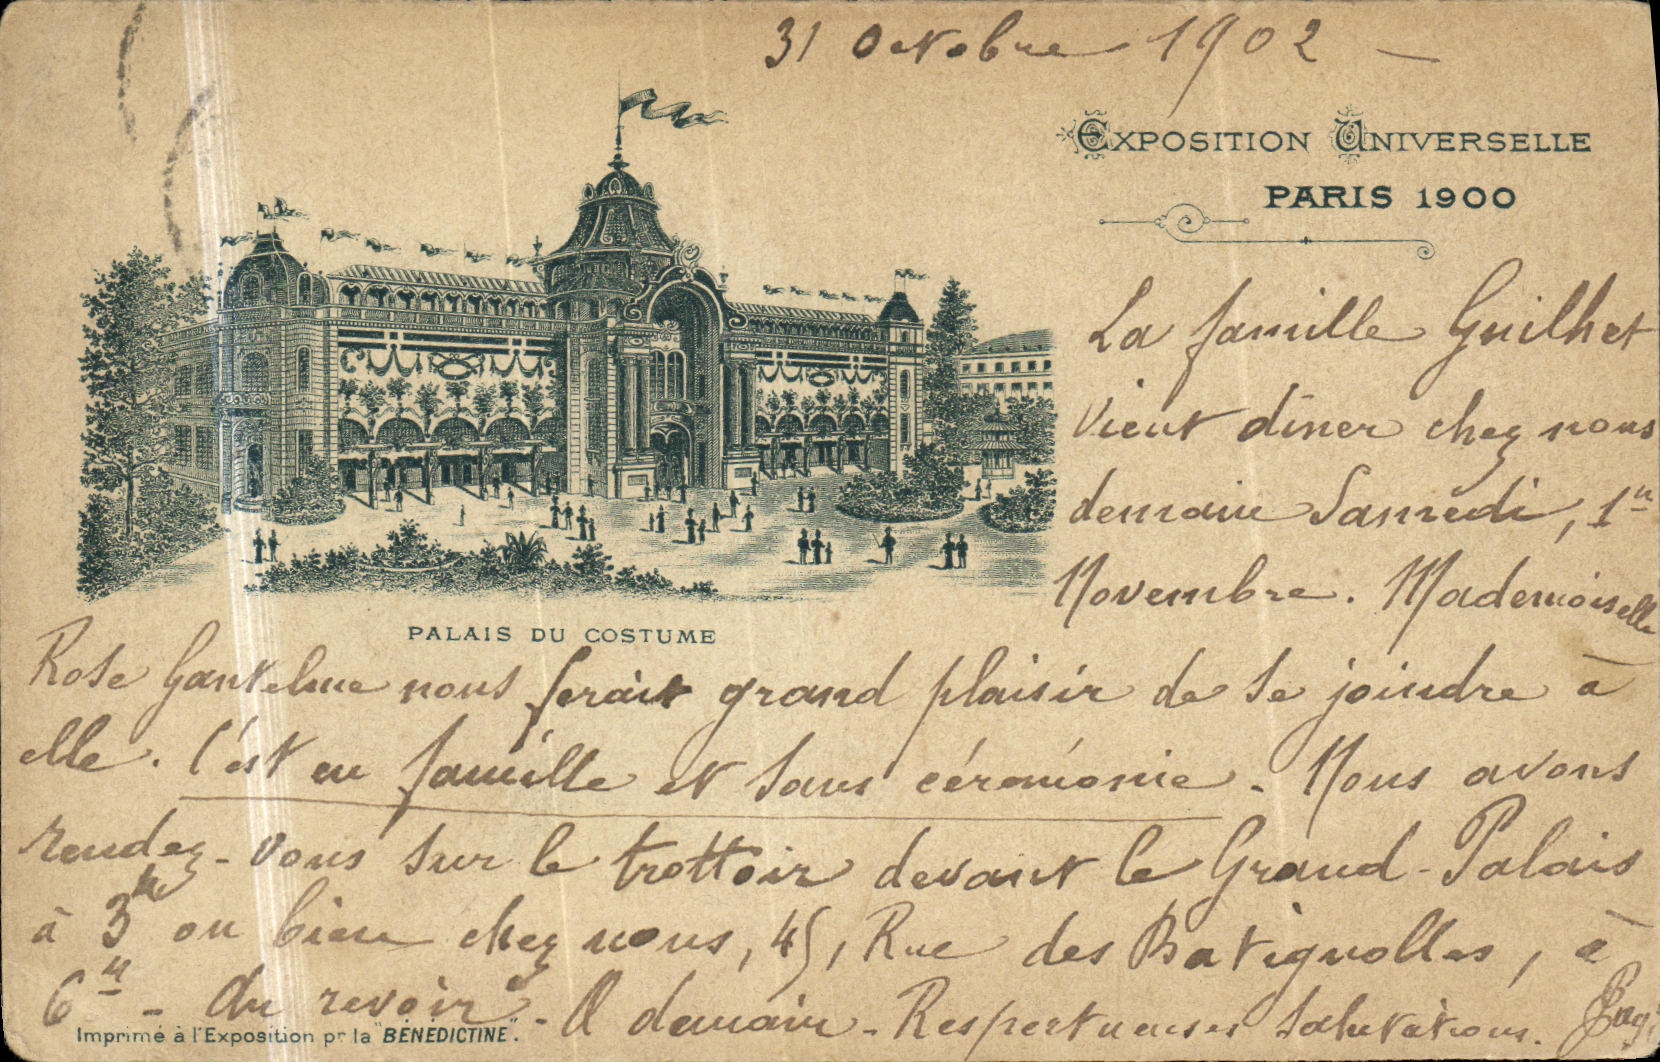 31 Octobre 1902 —
EXPOSITION UNIVERSELLE
PARIS 1900
La famille Guilhet
vient dîner chez nous
demain Samedi, 1er
Novembre. Mademoiselle
PALAIS DU COSTUME
Rose Gantelme nous ferait grand plaisir de se joindre à
elle. C'est en famille et sans cérémonie. Nous avons
rendez-vous sur le trottoir devant le Grand-Palais
à 3h ou bien chez nous, 45, Rue des Batignolles, à
6h - Au revoir - A demain - Respectueuses salutations.
Imprimé à l'Exposition pr la "BÉNÉDICTINE".